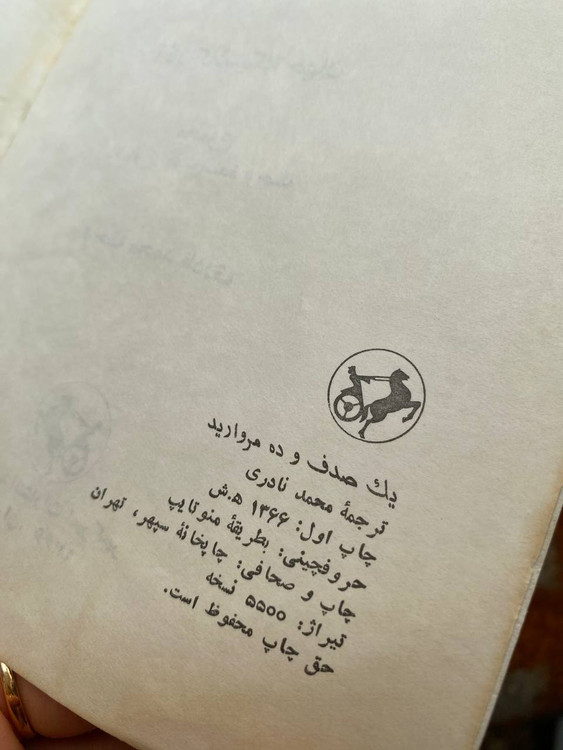 يك صدف و ده مرواريد
ترجمهٔ محمد نادری
چاپ اول: ۱۳۶۶ ه.ش
حروفچينی: بطريقهٔ منوتايپ
چاپ و صحافی: چاپخانهٔ سپهر، تهران
تيراژ: ۵۵۰۰ نسخه
حق چاپ محفوظ است.